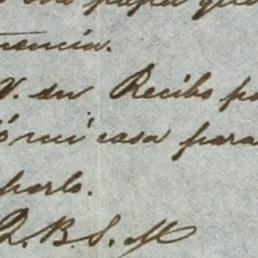 papel que
rencia.
V. su Recibo po
ó mi casa para
parlo.
Q. B. S. M